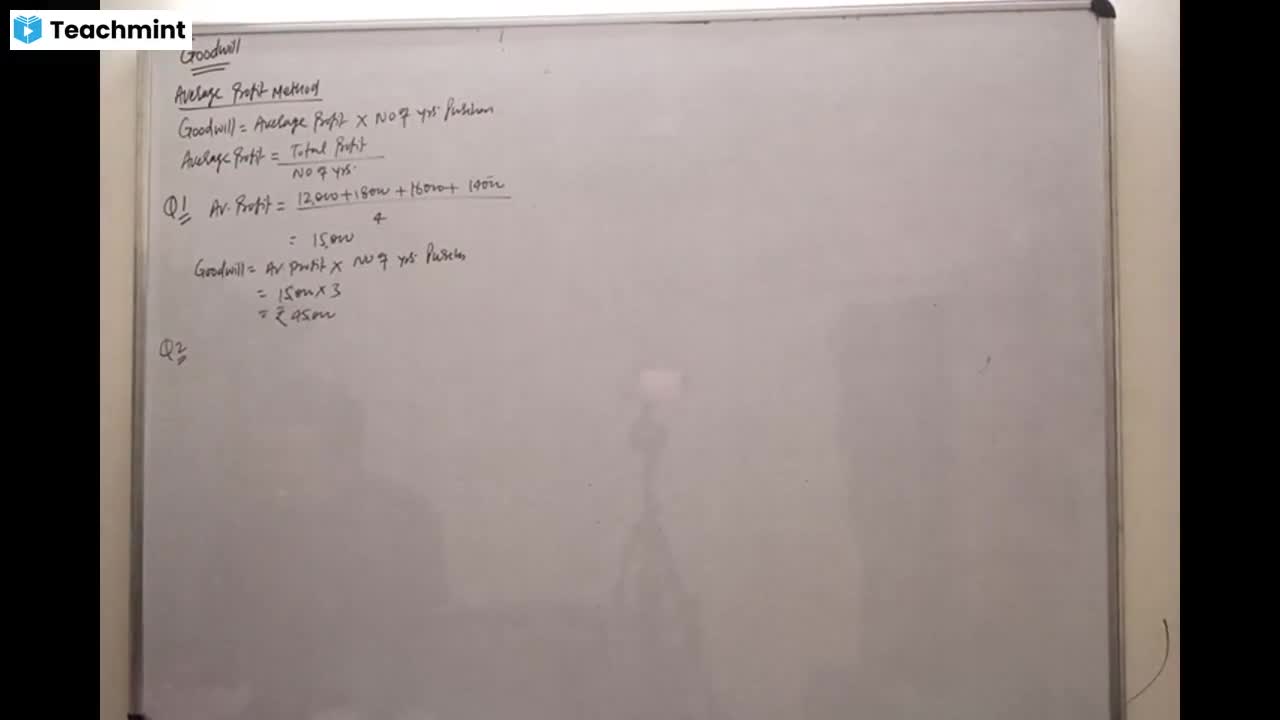 Teachmint
Goodwill
Average Profit Method
Goodwill = Average Profit × No of yrs. Purchase
Average Profit = Total Profit
No of yrs.
Q1 Av. Profit = 12,000 + 18000 + 16000 + 14000
4
= 15,000
Goodwill = Av. Profit × No of yrs. Purchase
= 15000 × 3
= ₹ 45000
Q2